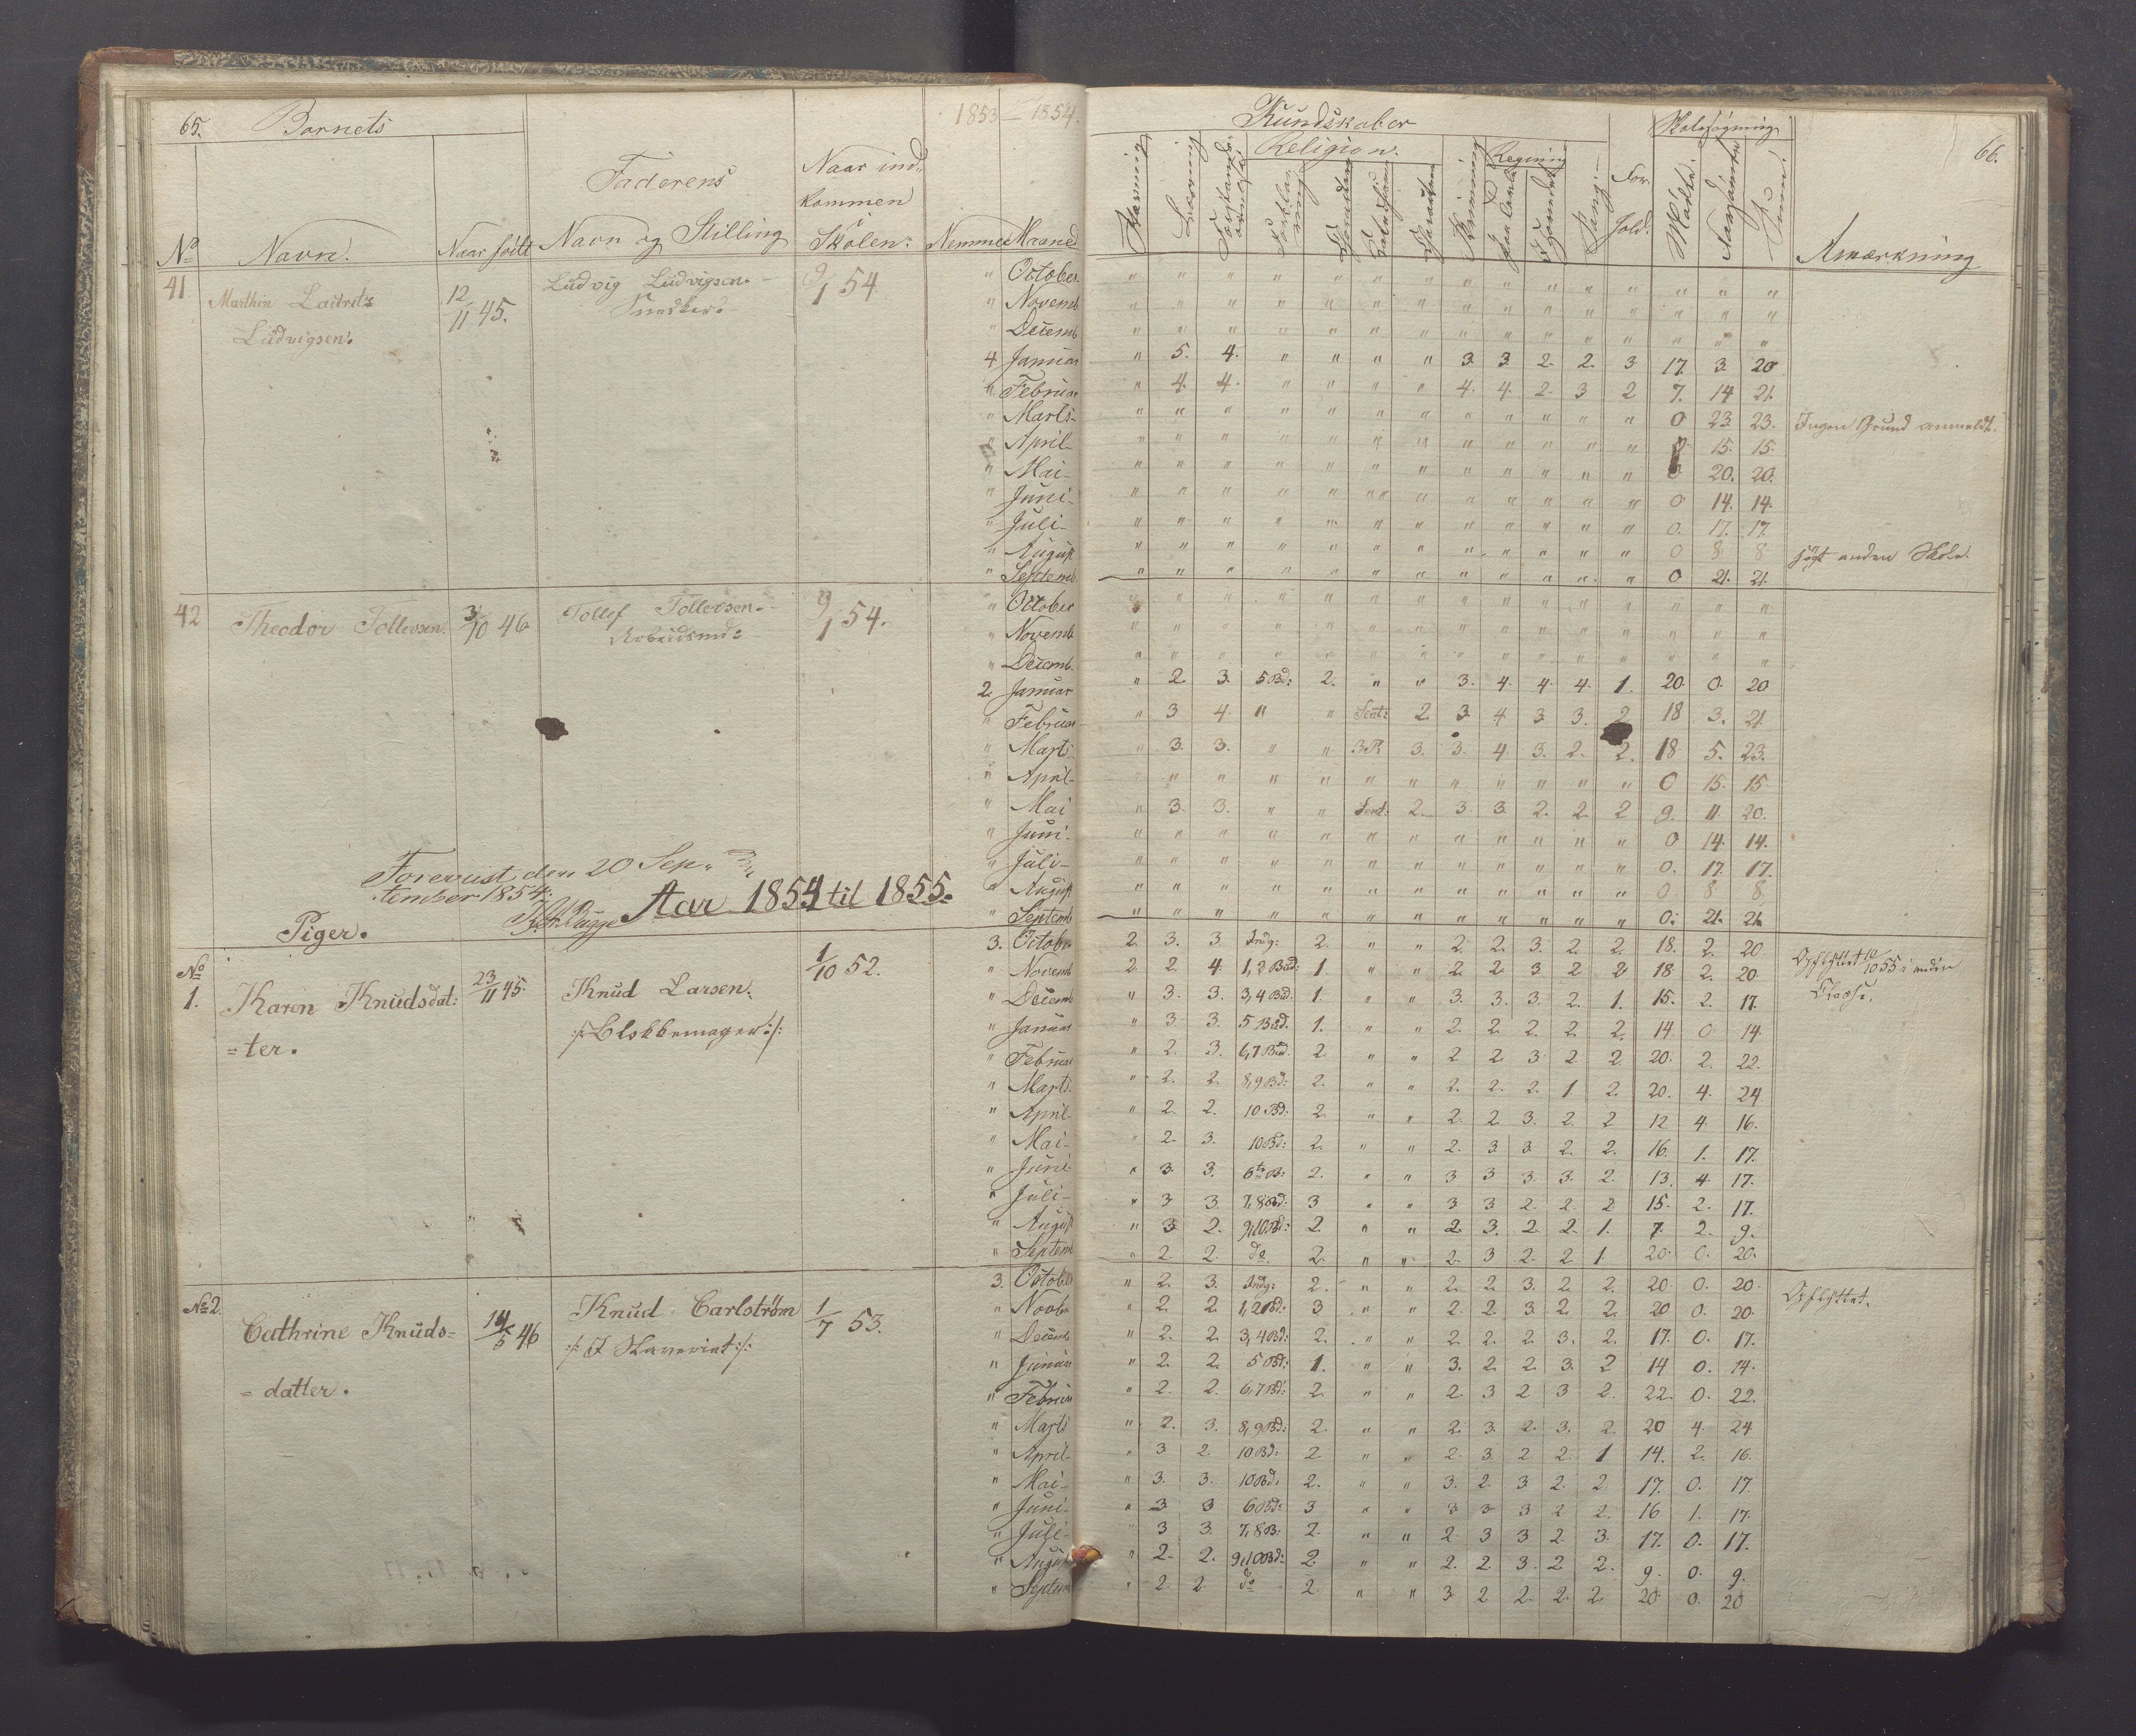 65. Barnets 1853 – 1854.
Faderens
Naar ind-
kommen
i
Skolen.
No Navn. Naar født Navn og Stilling Nemme Maaned
Kundskaber Skolesøgning 66.
Religion. Regning
Forhold. Mødte. Forsømte Sum. Anmærkning
41 Marthin Lauritz Ludvigsen. 12/11 45. Ludvig Ludvigsen. Snedker. 9/1 54
" October " " " " " " " " " " " " " " "
" Novemb " " " " " " " " " " " " " " "
" Decemb " " " " " " " " " " " " " " "
4 Januar " 5. 4. " " " " 3. 3. 2. 2. 3. 17. 3. 20
" Februar " 4. 4. " " " " 4. 4. 2. 3 2 7. 14 21.
" Marts " " " " " " " " " " " " 0 23. 23. Ingen Grund anmeldt.
" April " " " " " " " " " " " " 15. 15.
" Mai " " " " " " " " " " " " 20. 20.
" Juni " " " " " " " " " " " " 0 14. 14.
" Juli " " " " " " " " " " " " 0. 17. 17.
" August " " " " " " " " " " " " 0 8 8 søgt anden Skole.
" Septemb " " " " " " " " " " " " 0 21. 21.
42 Theodor Tollevsen. 3/10 46 Tollef Tollevsen. Arbeidsmd: 9/1 54.
" October " " " " " " " " " " " " " " "
" Novemb " " " " " " " " " " " " " " "
" Decemb " " " " " " " " " " " " " " "
2. Januar " 2. 3. 5 Bd: 2. " " 3. 4. 4. 4. 1. 20 0. 20
" Februar " 3 4. " " Sent: 2 3 4 3 3. 2 18 3. 21
" Marts " 3. 3. " " 3 P. 3. 3. 4. 3. 2. 2. 18. 5. 23.
" April " " " " " " " " " " " " 0 15. 15.
" Mai " 3. 3. " " Sent. 2. 3. 3. 2. 2. 2 9. 11. 20.
" Juni " " " " " " " " " " " " 0 14. 14.
" Juli " " " " " " " " " " " " 0. 17. 17.
" August " " " " " " " " " " " " 0 8 8.
" Septemb " " " " " " " " " " " " 0. 21. 21.
Foreviist den 20 Sep-
tember 1854.
Aar 1854 til 1855.
Piger.
No 1. Karen Knudsdat:
=ter. 23/11 45. Knud Larsen. /:Blokkemager:/ 1/10 52.
3. October 2. 3. 3 2. " " 2. 2. 3. 2. 2. 18. 2. 20
" Novemb 2. 2. 4. 1,2 Bud: 1. " " 2. 2. 3 2 2 18 2. 20 Opflyttet 12/10 55 i anden
" Decemb " 3. 3. 3,4 Bud. 1. " " 3. 3. 3. 2. 1. 15. 2. 17. Classe.
" Januar " 3. 3. 5 Bud. 1. " " 2. 2. 2. 2. 2. 14 0 14.
" Februar " 2. 3. 6,7 Bud. 2. " " 2 2 3 2 2 20. 2. 22.
" Marts " 2. 2. 8,9 Bd: 2. " " 2. 2. 2. 1 2. 20. 4. 24
" April " 2. 2. 10 Bd. 2. " " 2. 2 3. 2. 2 12 4. 16.
" Mai " 2. 3. 10 Bd: 2. " " 2. 3 3. 2. 2. 16. 1. 17.
" Juni " 3. 3. 6te B: 2. " " 3 3 3. 3. 2. 13. 4. 17.
" Juli " 3 3. 7,8 Bd. 3 " " 3 3 2. 2. 2 15. 2. 17.
" August " 3 2. 9,10 Bd: 2. " " 2. 3. 2. 2. 1. 7. 2. 9.
" Septemb " 2 2. do 2. " " 2. 3 2. 2 1 20. 0. 20.
No 2. Cathrine Knuds=
= datter. 14/5 46 Knud Carlström 1/7 53.
3. October " 2. 3. 2. " " 2. 2 3. 2. 2. 20 0. 20 Opflyttet.
" Novbr " 2 2 1,2 Bd: 3 " " 2. 2. 3 2. 2. 20 0. 20.
" Decemb " 2. 2. 3,4 Bd: 2. " " 2. 2. 2. 3. 2. 17. 0. 17.
" Januar " 2. 2. 5 Bd: 1. " " 3. 2. 2. 3. 2 14 0. 14.
" Februar " 2. 2. 6,7 Bd: 2. " " 2. 3 2 3 2. 22. 0. 22.
" Marts " 2. 3. 8,9 Bd: 2. " " 2. 3. 2. 3. 2. 20 4. 24
" April " 3 2. 10 Bd: 2 " " 2. 3. 2 2. 1 14. 2. 16.
" Mai " 3. 3. 10 Bd. 2. " " 3. 2. 3. 2. 2. 17. 0. 17.
" Juni " 3 3 6 Bd: 3 " " 3 3 3 2 2. 16 1. 17.
" Juli " 3 3. 7,8 B. 2. " " 2. 3 3 2 3. 17. 0. 17.
" August " 2. 2. 9,10 Bd: 2. " " 2. 2. 3. 2 2. 9. 0. 9.
" Septemb " 2. 2. do 2. " " 3 2 2. 2. 2 20 0. 20